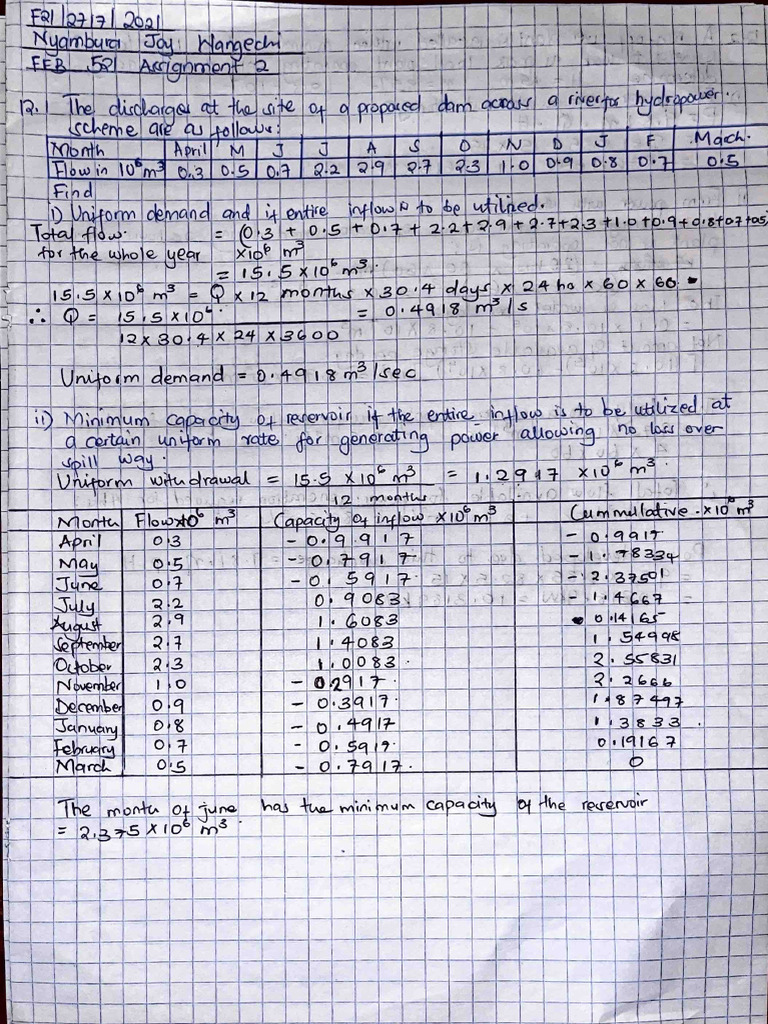 F21/2717/2021
Nyambura Joy Wangechi
FEB 521 Assignment 2
12.) The discharges at the site of a proposed dam across a river for hydropower
scheme are as follows:
Month April M J J A S O N D J F March
Flow in 10⁶m³ 0.3 0.5 0.7 2.2 2.9 2.7 2.3 1.0 0.9 0.8 0.7 0.5
Find
i) Uniform demand and if entire inflow is to be utilized.
Total flow = (0.3 + 0.5 + 0.7 + 2.2 + 2.9 + 2.7 + 2.3 + 1.0 + 0.9 + 0.8 + 0.7 + 0.5)
for the whole year x10⁶ m³
= 15.5 x 10⁶ m³.
15.5 x 10⁶ m³ = Q x 12 months x 30.4 days x 24 ho x 60 x 60
∴ Q = 15.5 x 10⁶ = 0.4918 m³/s
12 x 30.4 x 24 x 3600
Uniform demand = 0.4918 m³/sec
ii) Minimum capacity of reservoir if the entire inflow is to be utilized at
a certain uniform rate for generating power allowing no loss over
spill way.
Uniform withdrawal = 15.5 x 10⁶ m³ = 1.2917 x10⁶ m³.
12 months
Month Flow x10⁶ m³ Capacity of inflow x10⁶ m³ Cummulative x10⁶ m³
April 0.3 - 0.9917 - 0.9917
May 0.5 - 0.7917 - 1.78334
June 0.7 - 0.5917 - 2.37501
July 2.2 0.9083 - 1.4667
August 2.9 1.6083 0.14165
September 2.7 1.4083 1.54998
October 2.3 1.0083 2.55831
November 1.0 - 0.2917 2.2666
December 0.9 - 0.3917 1.87497
January 0.8 - 0.4917 1.3833
February 0.7 - 0.5917 0.79167
March 0.5 - 0.7917 0
The month of june has the minimum capacity of the reservoir
= 2.375 x 10⁶ m³.